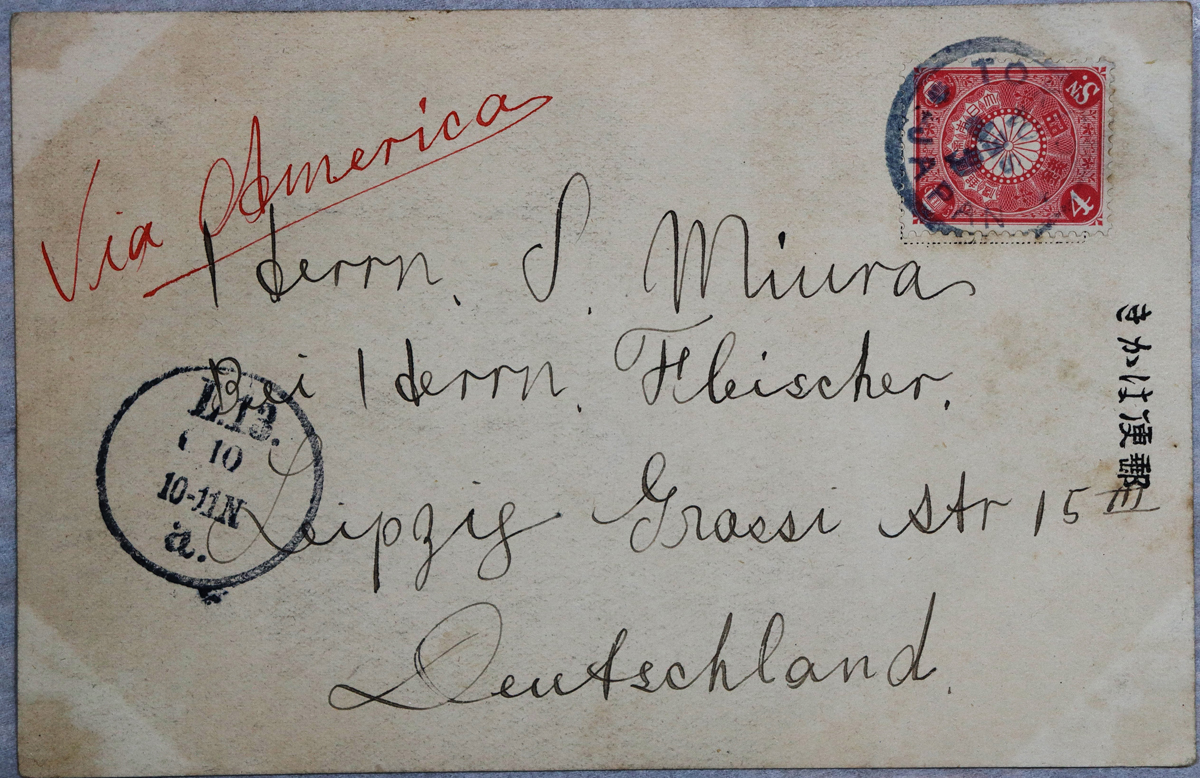 Via America
Herrn. S. Miura
Bei Herrn. Fleischer.
Leipzig Grassi str 15 III
Deutschland.
きかは便郵
L.13.
10
10-11N
a.
TO
JAPAN
4
Sn